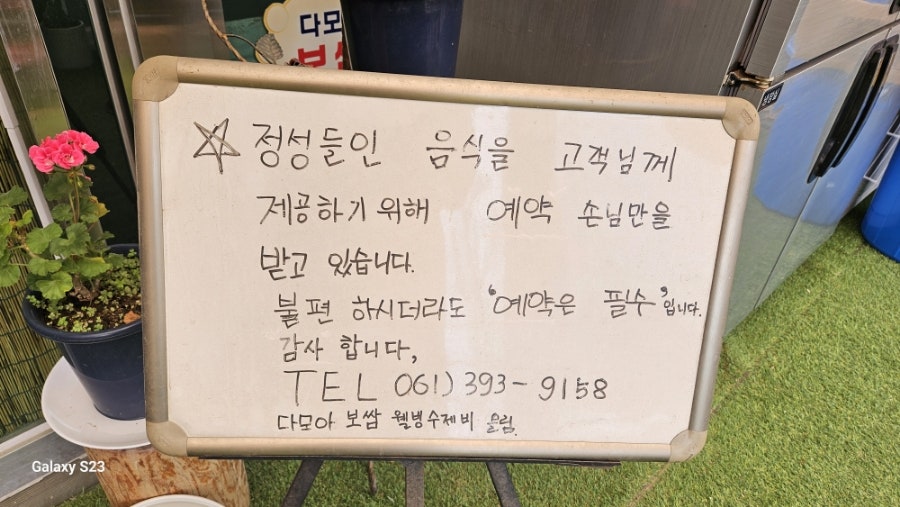 다모
보쌈
☆ 정성들인 음식을 고객님께
제공하기 위해 예약 손님만을
받고 있습니다.
불편 하시더라도 '예약은 필수'입니다.
감사 합니다,
TEL 061) 393-9158
다모아 보쌈 웰빙수제비 올림.
Galaxy S23